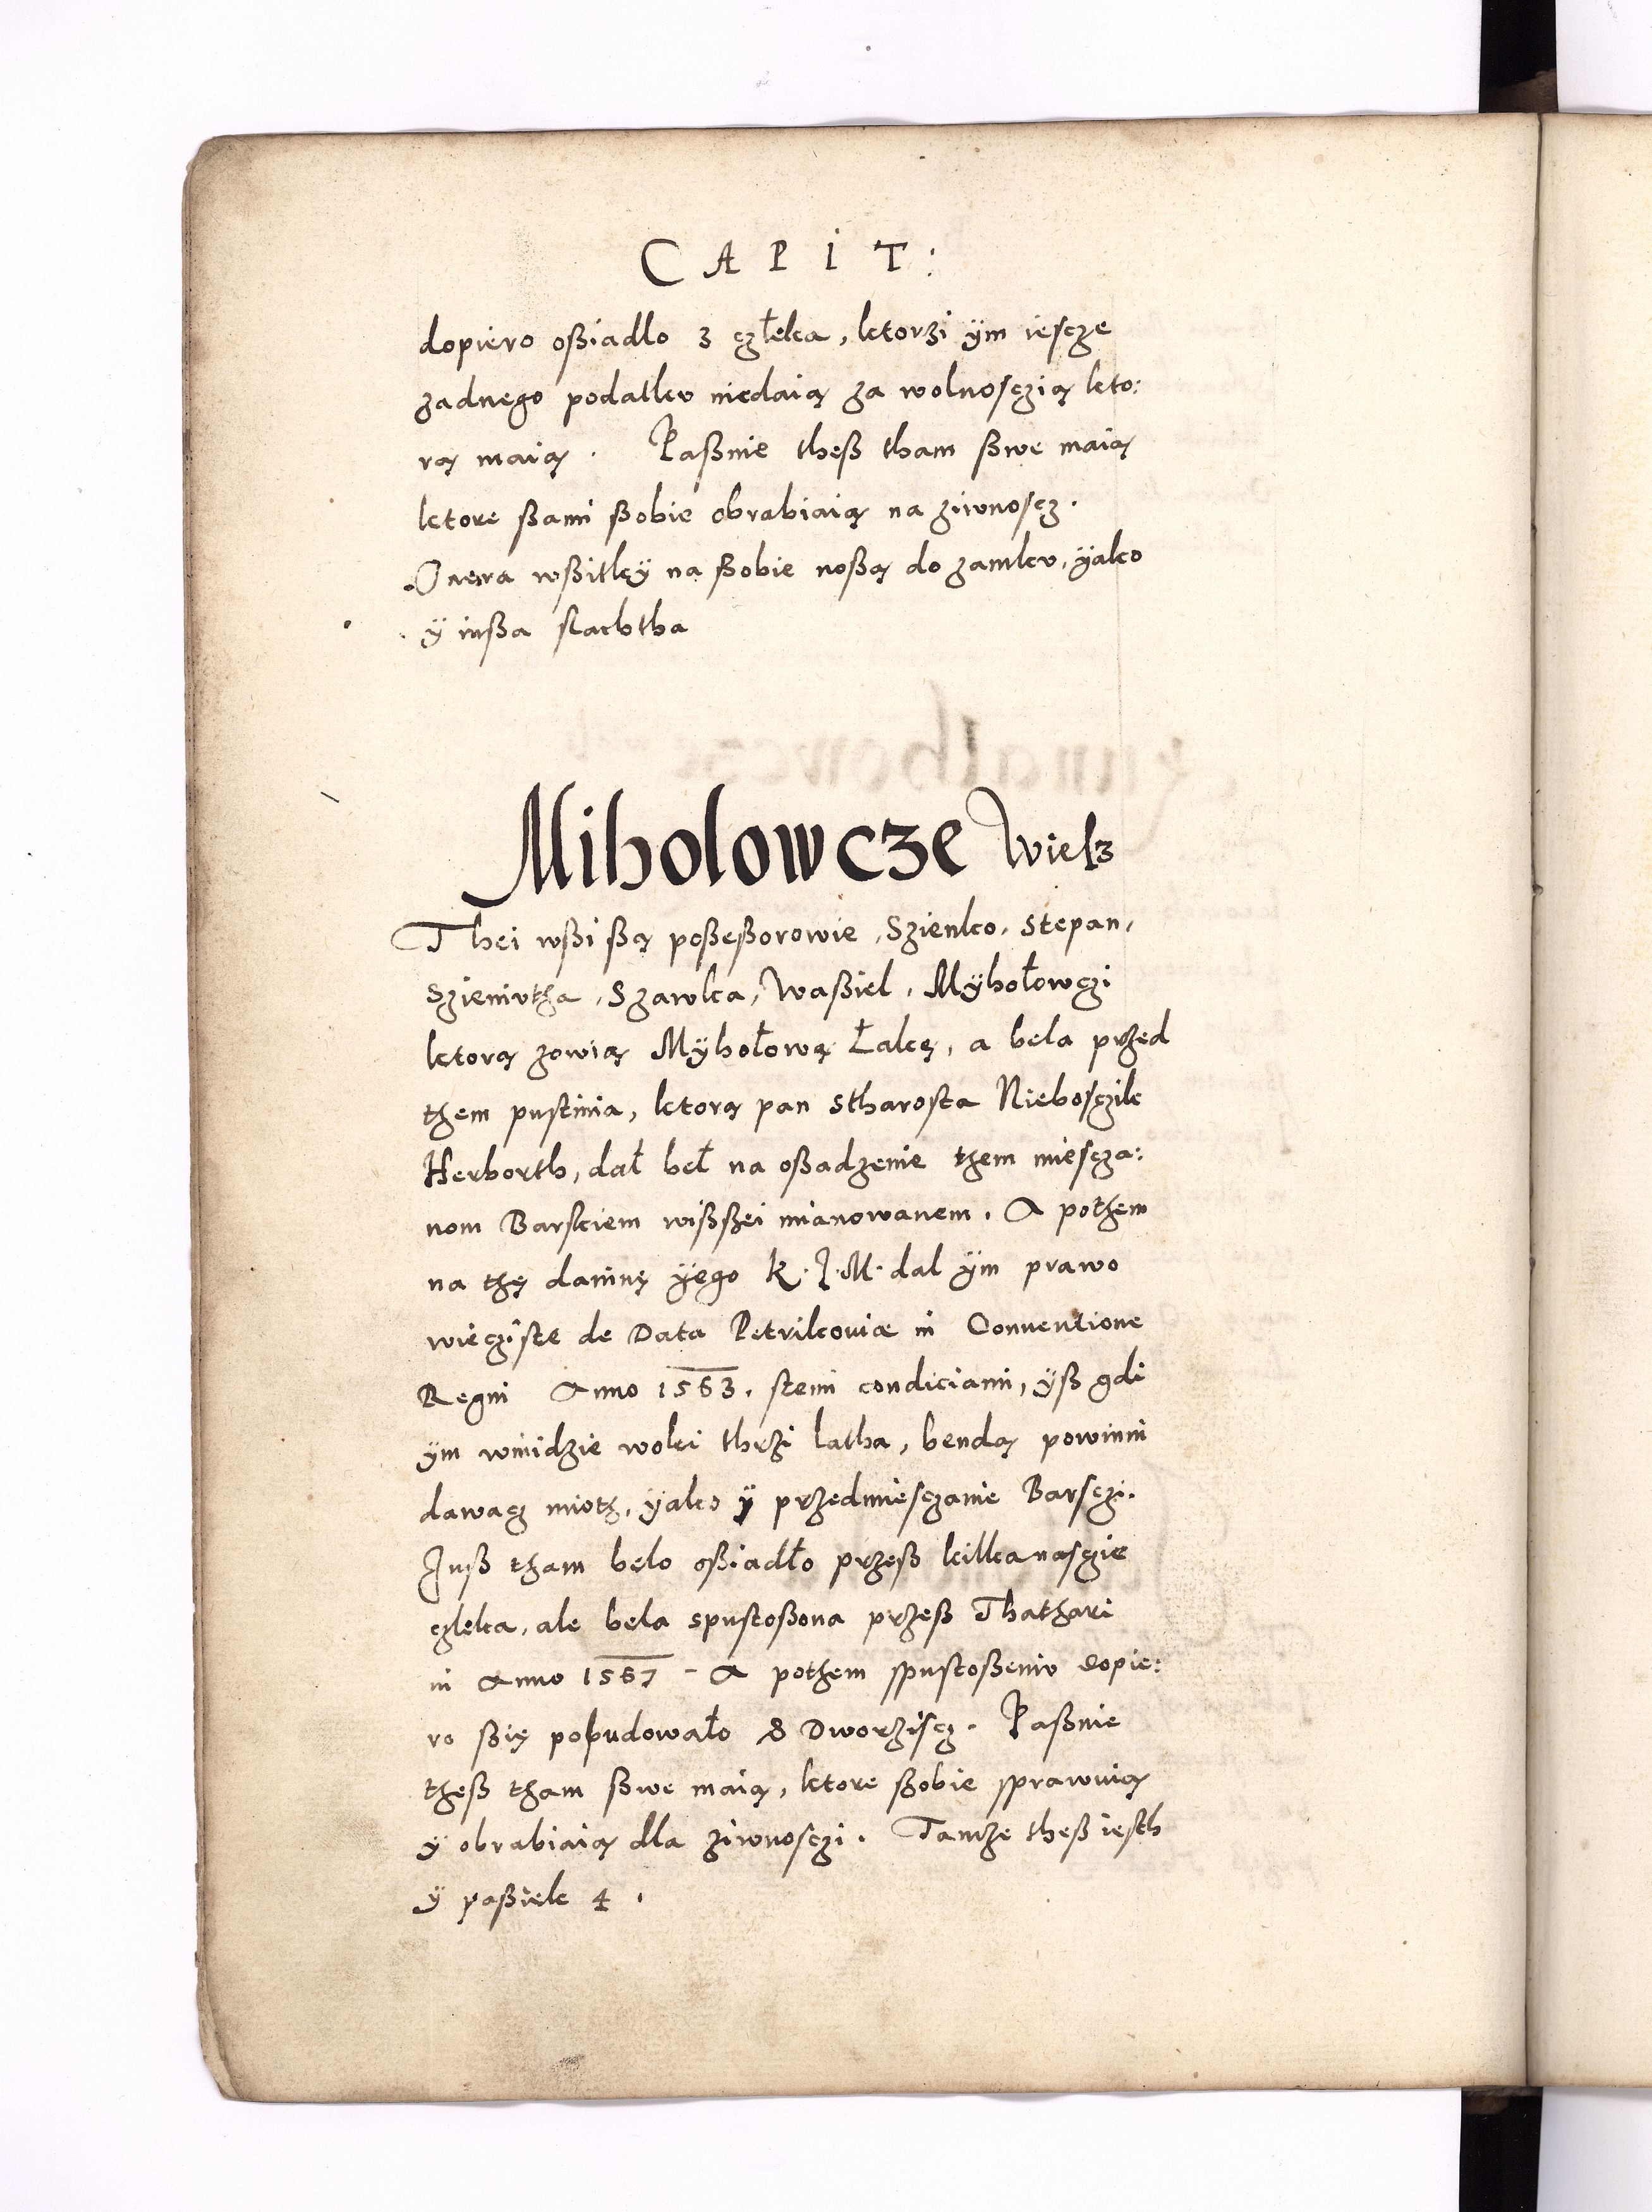 CAPIT:
dopiero oßiadlo 3 człeka, ktorzi ÿm iescze
zadnego podatku niedaią za wolnosczią kto:
rą maią. Paßnie theß tham ßwe maią
ktore ßami ßobie obrabiaią na ziwnoscz.
Onera wßitkÿ na ßobie noßą do zamku, ÿako
ÿ inßa slachtha
Miholowcze Wiełz
Thei wßi ßą poßeßorowie, Szienko, Stepan,
Szieniutha, Szawka, Waßiel, Mÿhołowczi
ktorą zowią Mÿhołową Łaką, a bela przed
them pustinia, ktorą pan Stharosta Nieboszczik
Herborth, dał beł na oßadzenie them miescza:
nom Barskiem wißßei mianowanem. A pothem
na thę daninę ÿego K. J. M. dal ÿm prawo
wieczÿste de Data Petrikouiæ in Conuentione
Regni Anno 1563. stemi condiciami, ÿß gdi
ÿm winidzie wolei thrzi latha, bendą powinni
dawacz mioth, ÿako ÿ przedmiesczanie Barsczi.
Juß tham belo oßiadło przeß kilkanascie
czleka, ale bela spustoßona przeß Thathari
in Anno 1567 - A pothem spustoßeniu dopie:
ro ßię pobudowało 8 Dworziscz. Paßnie
theß tham ßwe maią, ktore ßobie sprawuią
ÿ obrabiaią dla ziwnosczi. Tamze theß iesth
ÿ paßiek 4.